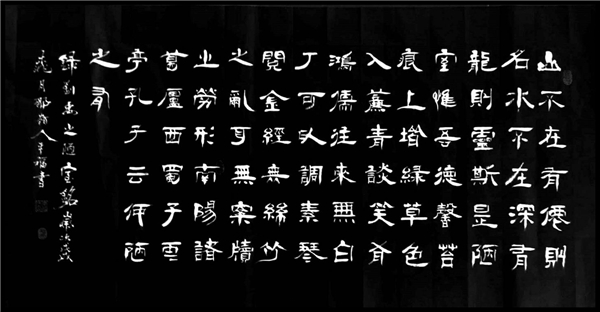 山不在有僊則
名水不在深有
龍則靈斯是陋
室惟吾德馨苔
痕上堦綠草色
入簾青談笑有
鴻儒往來無白
丁可以調素琴
閱金經無絲竹
之亂耳無案牘
之勞形南陽諸
葛廬西蜀子雲
亭孔子云何陋
之有
錄劉禹之陋室銘
書